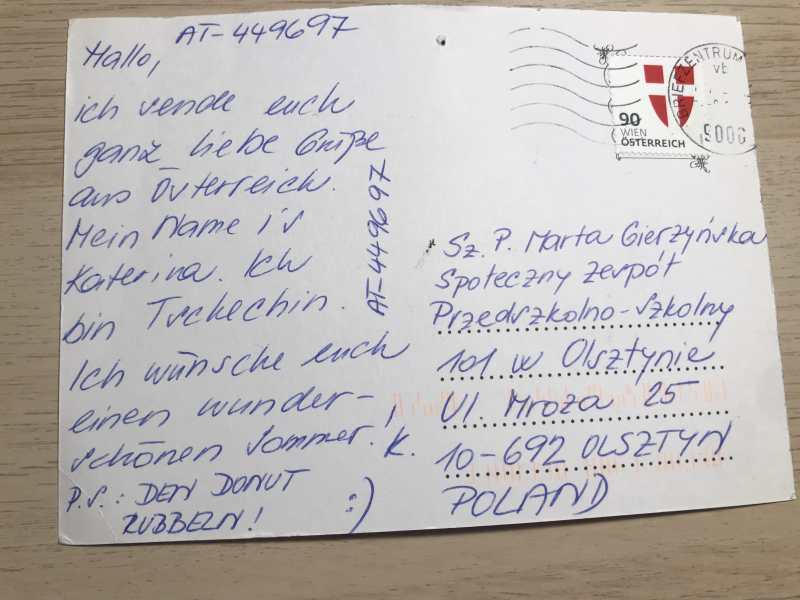 AT-449697
Hallo,
ich sende euch
ganz liebe Grüße
aus Österreich.
Mein Name is
Katerina. Ich
bin Tschechin.
Ich wünsche euch
einen wunder-
schönen Sommer.
K.
P.S.: DEN DONUT
RUBBELN! :)
AT-449697
BRIEFZENTRUM
9000
90
WIEN
ÖSTERREICH
Sz. P. Marta Gierzyńska
Społeczny Zespół
Przedszkolno-Szkolny
101 w Olsztynie
Ul. Mroza 25
10-692 OLSZTYN
POLAND